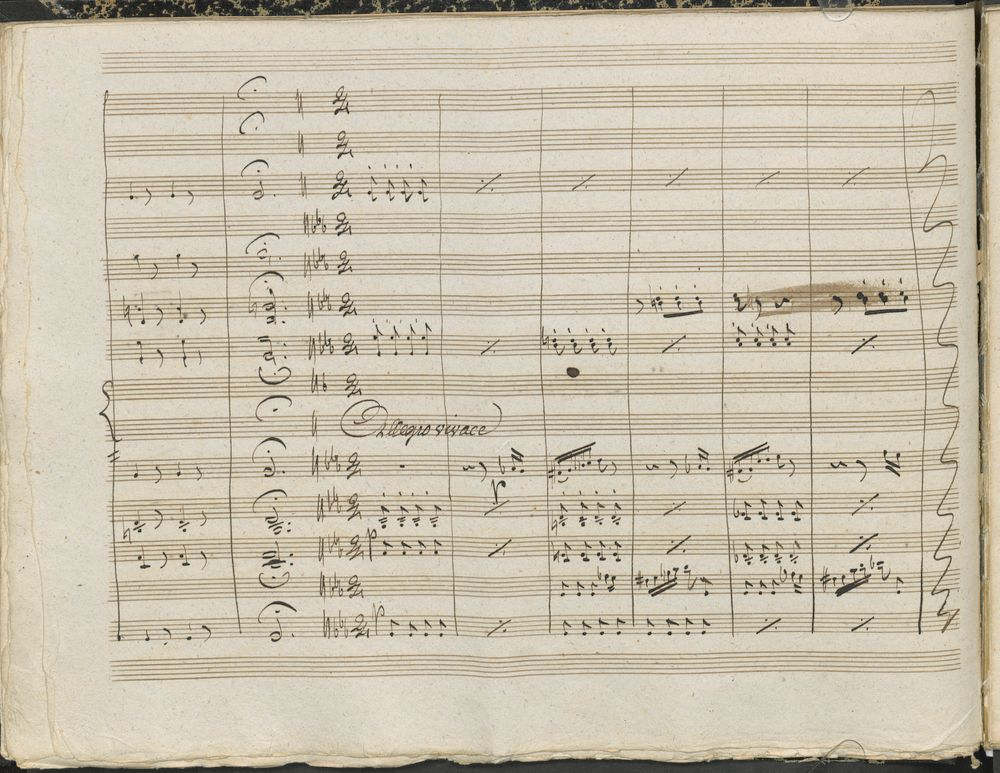 Allegro vivace